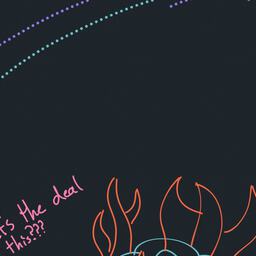 the deal
this???